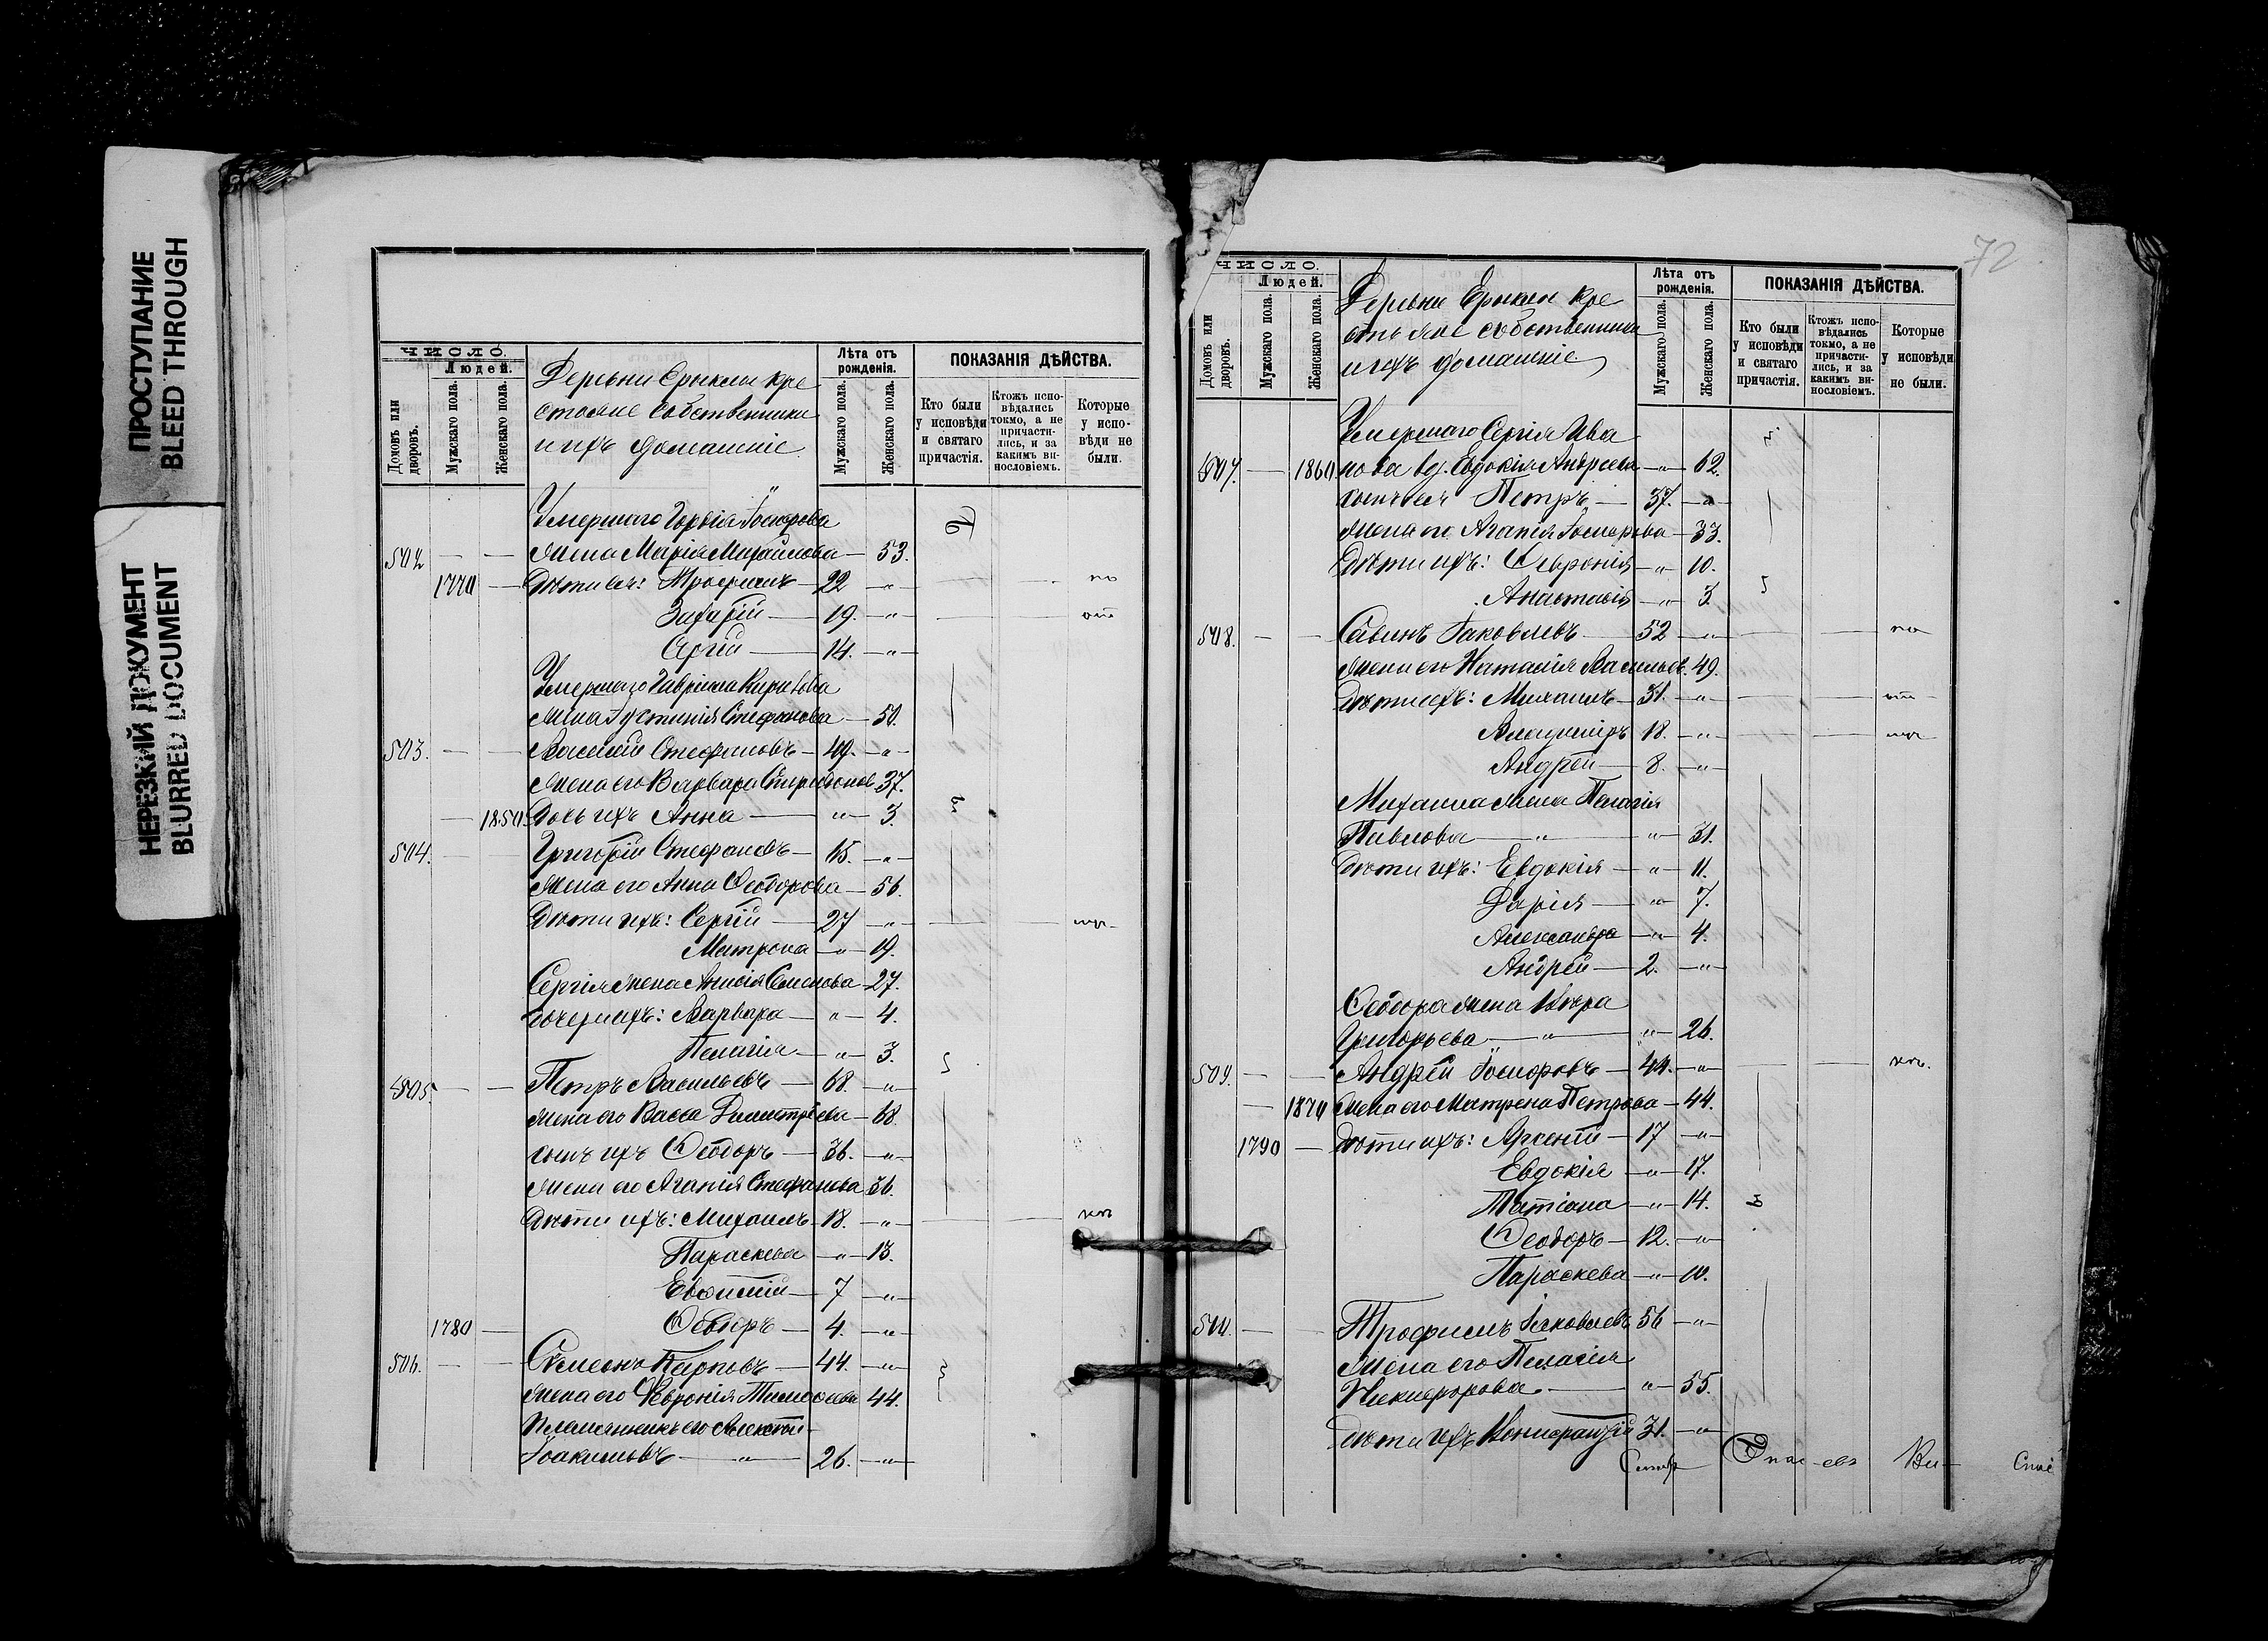 ПРОСТУПАНИЕ
BLEED THROUGH
НЕРЕЗКИЙ ДОКУМЕНТ
BLURRED DOCUMENT
ЧИСЛО.
Людей.
Домовъ или дворовъ.
Мужскаго пола.
Женскаго пола.
Деревни Ерыклы кре
стьяне собственники
и ихъ домашніе
Лѣта отъ рожденія.
Мужскаго пола.
Женскаго пола.
ПОКАЗАНІЯ ДѢЙСТВА.
Кто были у исповѣди и святаго причастія.
Ктожъ исповѣдались токмо, а не причастились, и за какимъ винословіемъ.
Которые у исповѣди не были.
Умершаго Гордія
502 — — Жена Марія Михайлова — 53.
1770 — Дѣти ея: Трофимъ — 22 — „ — по
Захарій — 19. — „ — отл
Сергій — 14. — „ —
Умершаго Гавріила
Жена Іустинія Стефанова — 50.
503. — — Василій Стефановъ — 49. — „ —
Жена его Варвара Спиридонов. 37.
— 1850. Дочь ихъ Анна — „ — 3.
504. — — Григорій Стефановъ — 65. — „ —
Жена его Анна Ѳеодорова — 56.
Дѣти ихъ: Сергій — 27 — „ —
Матрона — „ — 19.
Сергія жена Анисія Семенова — 27.
дочери ихъ: Варвара — „ — 4.
Пелагія — „ — 3.
505. — — Петръ Васильевъ — 68. — „ —
Жена его Васса Димитріева — 68.
сынъ ихъ Ѳеодоръ — 36. — „ —
Жена его Агапія Стефанова 36.
Дѣти ихъ: Михаилъ — 18. — „ —
Параскева — „ — 13.
Евѳимій — 7 — „ —
1780 — Ѳеодоръ — 4. — „ —
506. — — Симеонъ Карповъ — 44. — „ —
Жена его Ѳевронія Тимоѳеева 44.
Племянникъ его Алексѣй
Іоакимовъ — „ — 26. — „ —
72
ЧИСЛО.
Людей.
Домовъ или дворовъ.
Мужскаго пола.
Женскаго пола.
Деревни Ерыклы кре
стьяне собственники
и ихъ домашніе
Лѣта отъ рожденія.
Мужскаго пола.
Женскаго пола.
ПОКАЗАНІЯ ДѢЙСТВА.
Кто были у исповѣди и святаго причастія.
Ктожъ исповѣдались токмо, а не причастились, и за какимъ винословіемъ.
Которые у исповѣди не были.
Умершаго Сергія Ива
507. — 1860. нова вд. Евдокія Андреева — „ — 62.
сынъ ея Петръ — 37. — „
Жена его Агапія — 33.
Дѣти ихъ: Ѳевронія — „ — 10.
Анастасія — „ — 3.
508. — — Савинъ Іаковлевъ — 52 — „ — по
Жена его Наталія Васильев. 49.
Дѣти ихъ: Михаилъ — 31. — „ — отл
Владиміръ 18. — „ —
Андрей — 8. — „ —
Михаила жена Пелагія
Павлова — „ — „ — 31.
Дѣти ихъ: Евдокія — „ — 11.
Дарія — „ — 7.
Александра — „ — 4.
Андрей — 2. — „ —
Ѳеодора жена Вѣра
Григорьева — „ — „ — 26.
509. — — Андрей — 44. — „ —
— 1870 Жена его Матрена Петрова — 44.
1790 — Дѣти ихъ: Арсеній — 17 — „ —
Евдокія — „ — 17.
Татіана — „ — 14.
Ѳеодоръ — 12. — „ —
Параскева — „ — 10.
510. — — Трофимъ Іаковлевъ 56 — „ —
Жена его Пелагія
Никифорова. — „ — 55.
Дѣти ихъ 31. — „ —